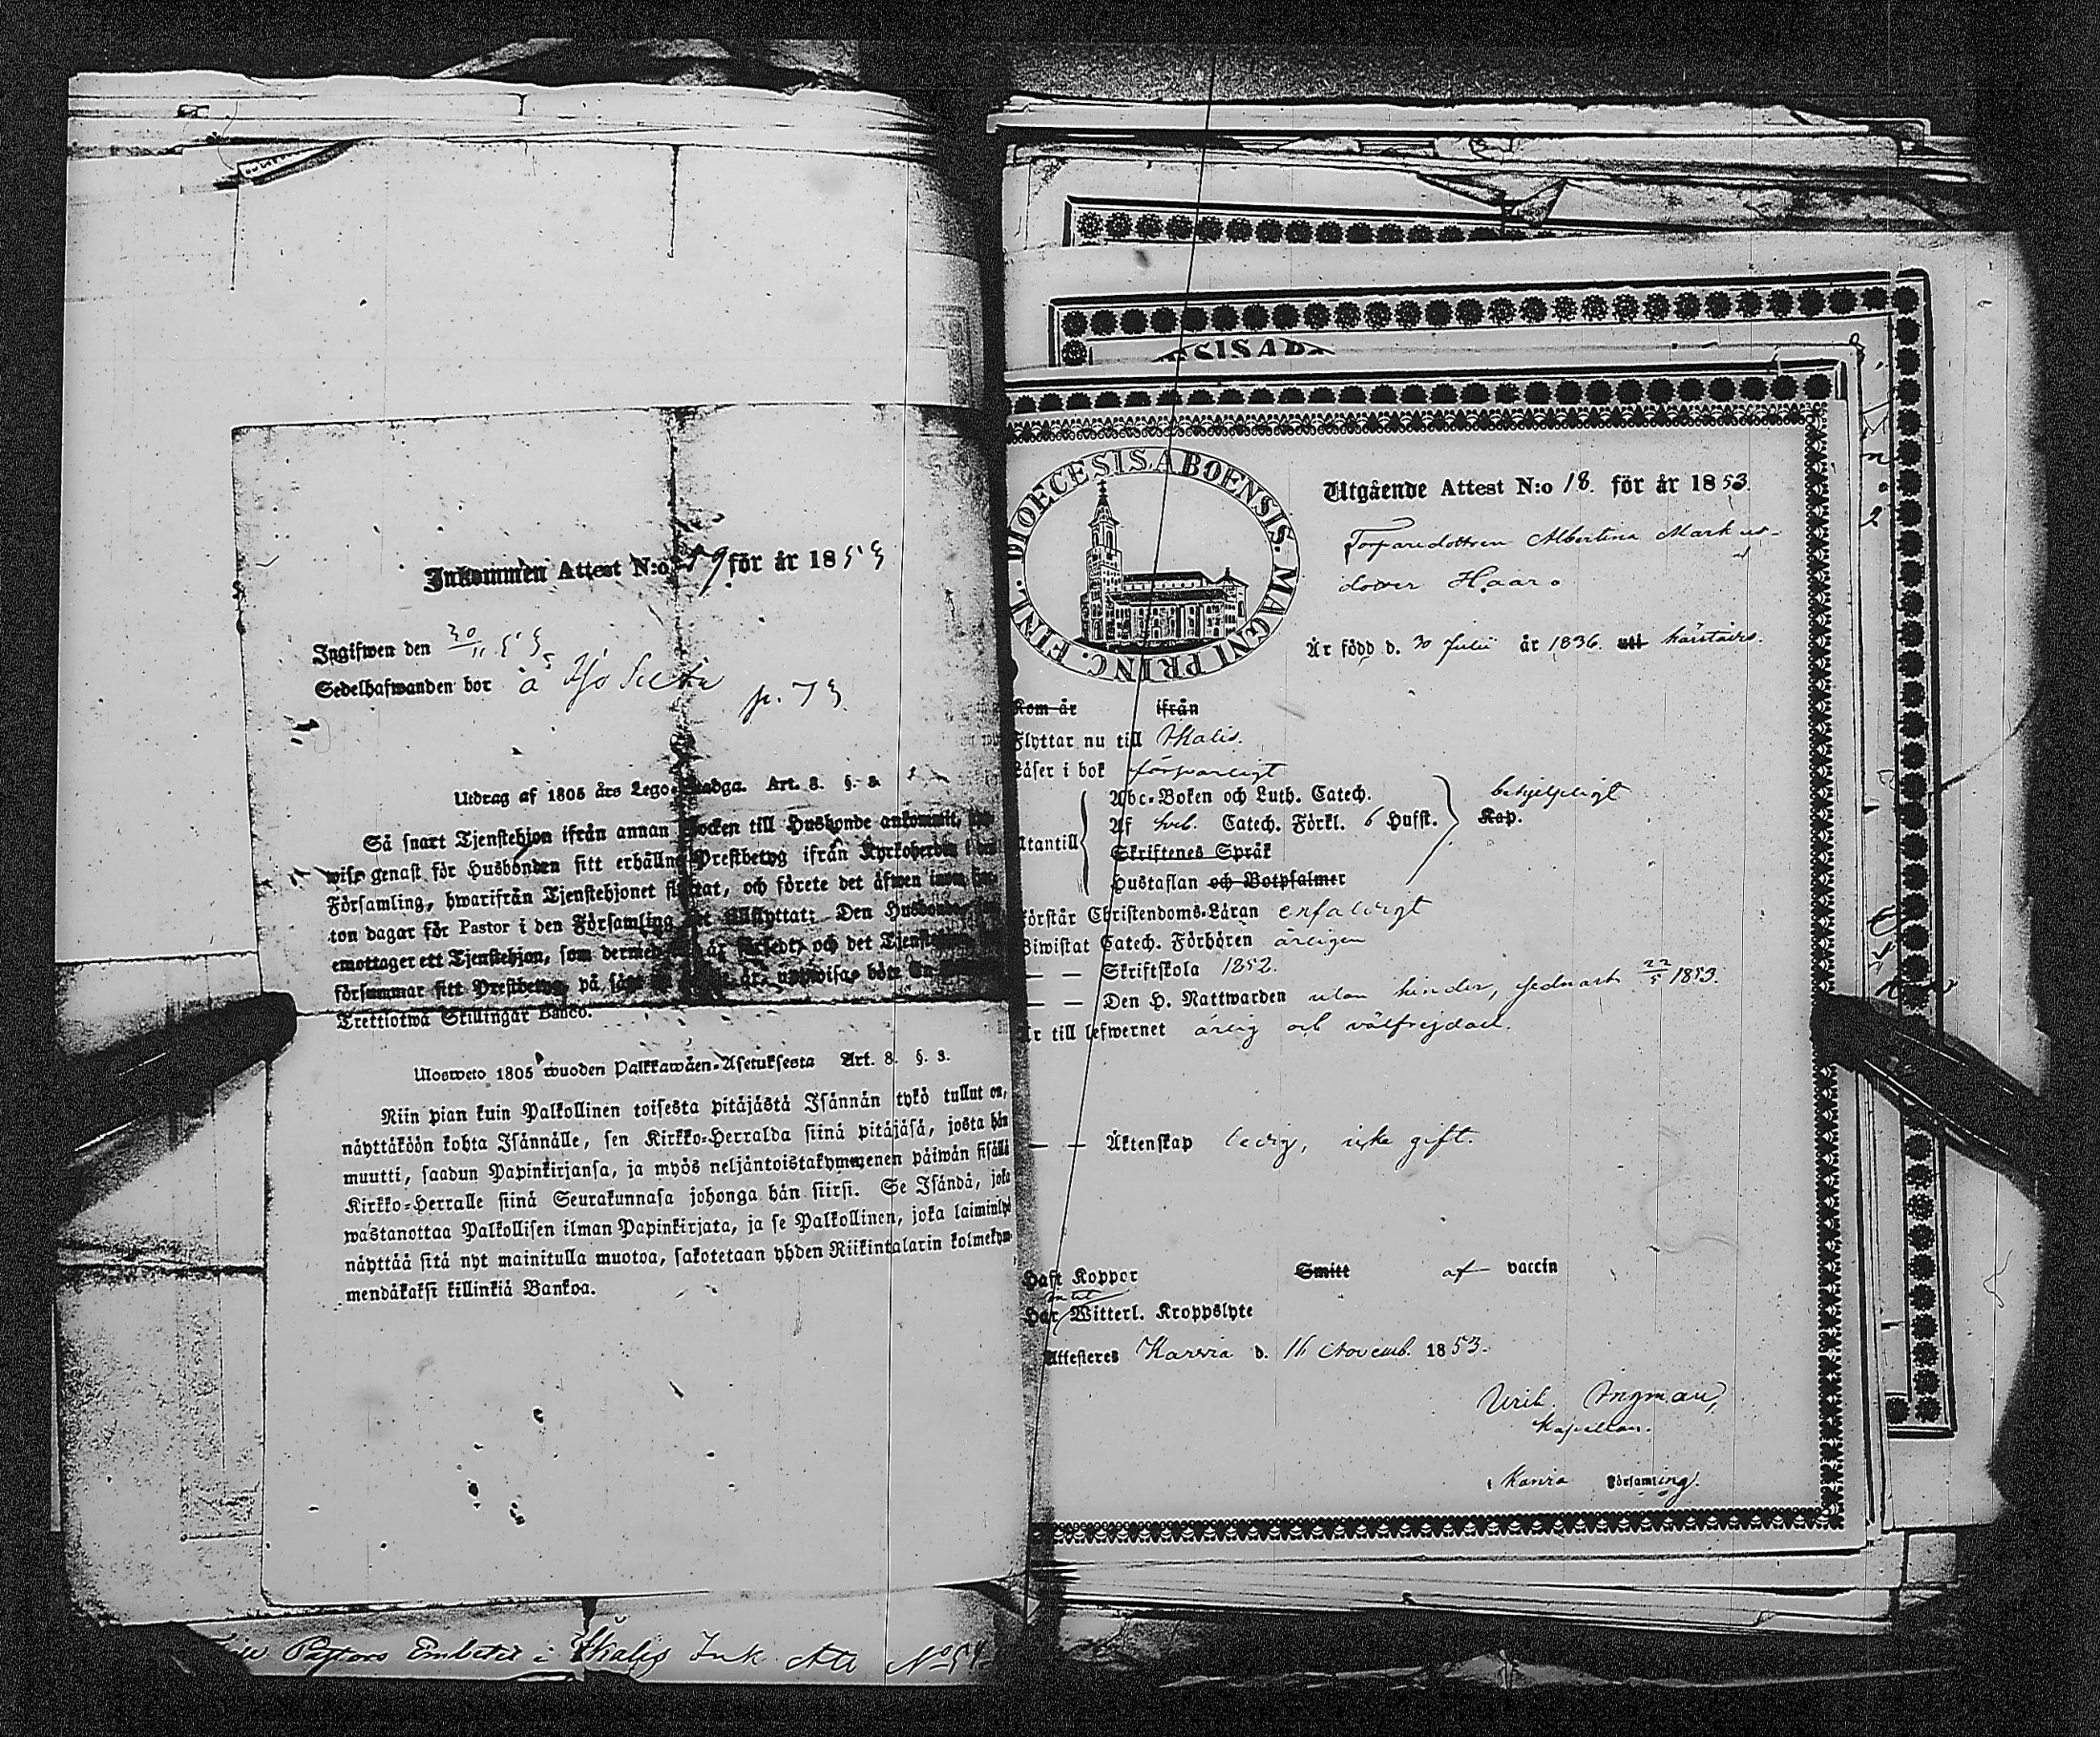 Inkommen Attest N:o 59 för år 1853
Ingifwen den 30/11 53
Sedelhafwanden bor å
p. 73
Utdrag af 1805 års Lego-Stadga. Art. 8. §. 3.
Så snart Tjenstehjon ifrån annan Socken till Husbonde ankommit,
wise genast för Husbonden sitt erhållne Prestbetyg ifrån Kyrkoherden i den
Församling, hwarifrån Tjenstehjonet flyttat, och förete det äfwen inom
ton dagar för Pastor i den Församling det tillflyttat: Den Husbonde,
emottager ett Tjenstehjon, som dermed är och det Tjenstehjon
försummar sitt Prestbetyg, på sätt är, böte En
Trettiotwå Skillingar Banco.
Ulosweto 1805 wuoden Palkkawäen-Asetuksesta Art. 8. §. 3.
Niin pian kuin Palkollinen toisesta pitäjästä Isännän tykö tullut on,
näyttäköön kohta Isännälle, sen Kirkko-Herralda siinä pitäjäsä, josta hän
muutti, saadun Papinkirjansa, ja myös neljäntoistakymmenen päiwän sisällä
Kirkko-Herralle siinä Seurakunnasa johonga hän siirsi. Se Isändä, joka
wastanottaa Palkollisen ilman Papinkirjata, ja se Palkollinen, joka laiminlyö
näyttää sitä nyt mainitulla muotoa, sakotetaan yhden Riikintalarin kolmekym-
mendäkaksi killinkiä Bankoa.
Pastors Embetet i Ikalis Ink. Att. No 54
SISAB
DIOECESIS ABOENSIS. MAGNI PRINC. FINL.
Utgående Attest N:o 18. för år 1853.
Torparedottren Albertina Markus-
dotter Haara
Är född d. 30 Julii år 1836. uti härstädes.
Kom år ifrån
Flyttar nu till Ikalis.
Läser i bok försvarligt
Utantill Abc-Boken och Luth. Catech. behjelpeligt
Af Catech. Förkl. 6 Hufst. Kap.
Skriftenes Språk
Hustaflan och Botpsalmer
Förstår Christendoms-Läran enfaldigt
Biwistat Catech. Förhören årligen
— — Skriftskola 1852.
— — Den H. Nattwarden utan hinder, sednast 22/5 1853.
Är till lefwernet ärlig och välfrejdad.
— — Äktenskap ledig, icke gift.
Haft Koppor Smitt af vaccin
Har intet Witterl. Kroppslyte
Attesteres Karvia d. 16 Novemb. 1853.
Ingman,
Kapellan.
i Karvia Församling.